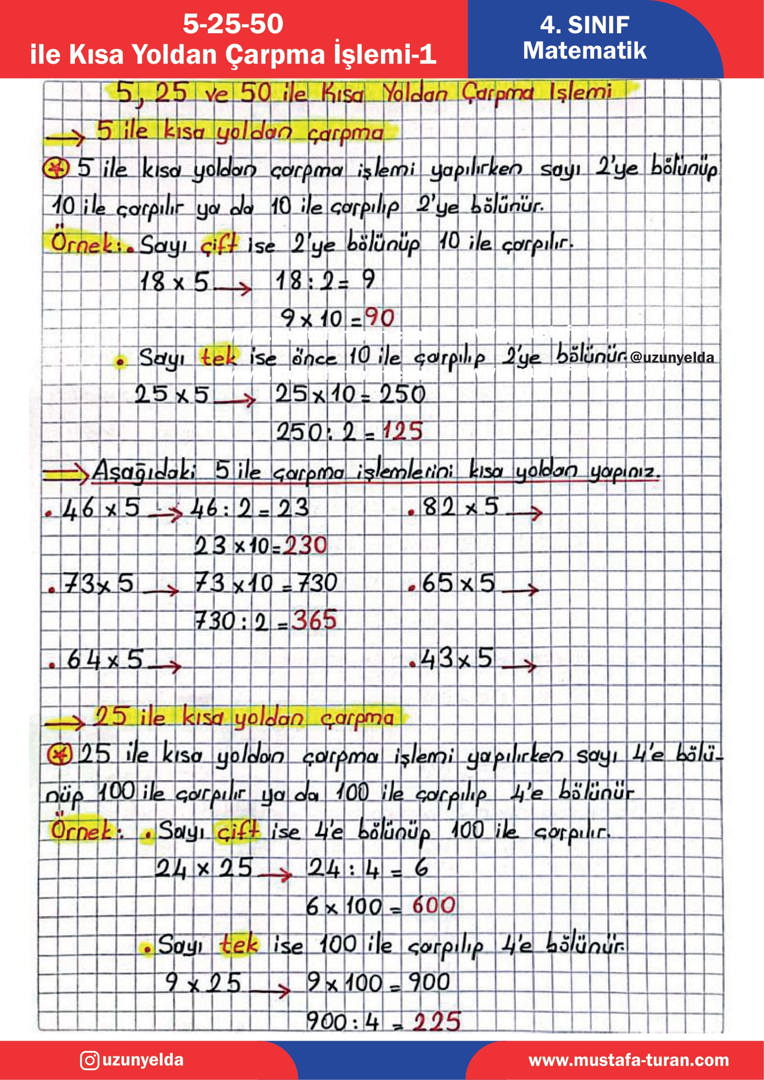 5-25-50
ile Kısa Yoldan Çarpma İşlemi-1
4. SINIF
Matematik
5, 25 ve 50 ile Kısa Yoldan Çarpma İşlemi
→ 5 ile kısa yoldan çarpma
* 5 ile kısa yoldan çarpma işlemi yapılırken sayı 2'ye bölünüp
10 ile çarpılır ya da 10 ile çarpılıp 2'ye bölünür.
Örnek: • Sayı çift ise 2'ye bölünüp 10 ile çarpılır.
18 x 5 → 18 : 2 = 9
9 x 10 = 90
• Sayı tek ise önce 10 ile çarpılıp 2'ye bölünür. @uzunyelda
25 x 5 → 25 x 10 = 250
250 : 2 = 125
→ Aşağıdaki 5 ile çarpma işlemlerini kısa yoldan yapınız.
• 46 x 5 → 46 : 2 = 23 • 82 x 5 →
23 x 10 = 230
• 73 x 5 → 73 x 10 = 730 • 65 x 5 →
730 : 2 = 365
• 64 x 5 → • 43 x 5 →
→ 25 ile kısa yoldan çarpma
* 25 ile kısa yoldan çarpma işlemi yapılırken sayı 4'e bölü-
nüp 100 ile çarpılır ya da 100 ile çarpılıp 4'e bölünür
Örnek: • Sayı çift ise 4'e bölünüp 100 ile çarpılır.
24 x 25 → 24 : 4 = 6
6 x 100 = 600
• Sayı tek ise 100 ile çarpılıp 4'e bölünür.
9 x 25 → 9 x 100 = 900
900 : 4 = 225
uzunyelda
www.mustafa-turan.com